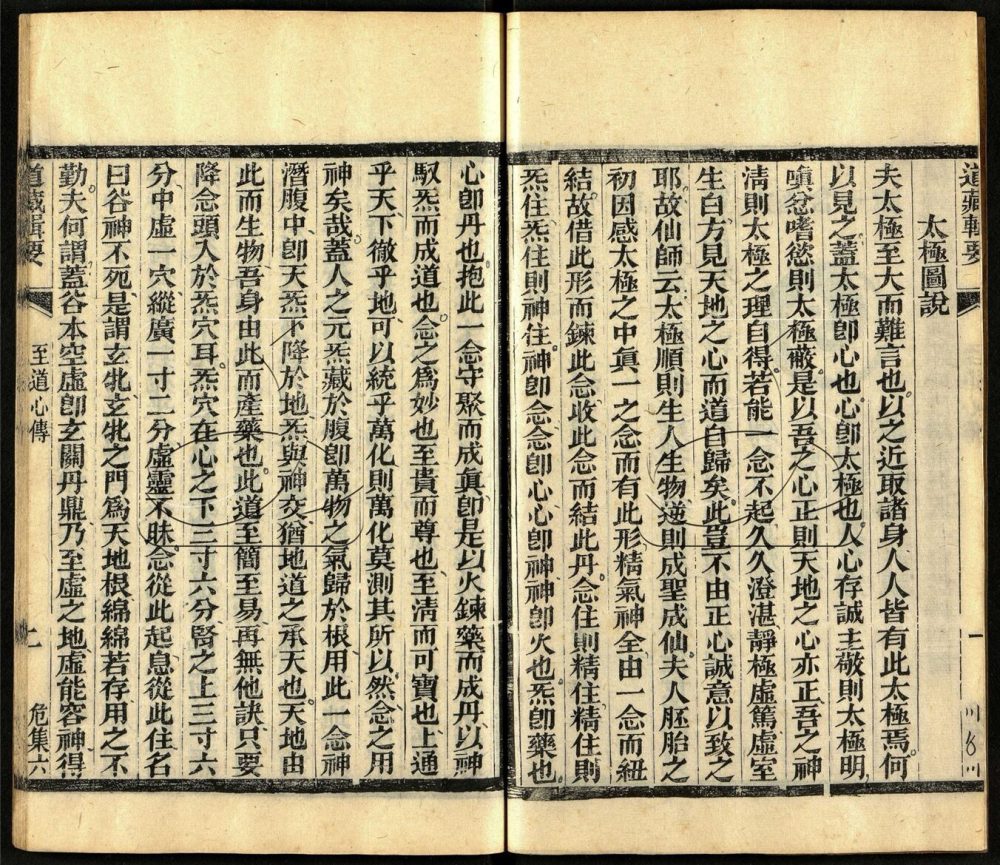 道藏輯要
一
太極圖說
夫太極至大而難言也以之近取諸身人人皆有此太極焉何
以見之蓋太極卽心也心卽太極也人心存誠主敬則太極明
嗔忿嗜慾則太極蔽是以吾之心正則天地之心亦正吾之神
淸則太極之理自得若能一念不起久久澄湛靜極虛篤虛室
生白方見天地之心而道自歸矣此豈不由正心誠意以致之
耶故仙師云太極順則生人生物逆則成聖成仙夫人胚胎之
初因感太極之中眞一之念而有此形精氣神全由一念而紐
結故借此形而鍊此念收此念而結此丹念住則精住精住則
炁住炁住則神住神卽念念卽心心卽神神卽火也炁卽藥也
心卽丹也抱此一念守聚而成眞卽是以火鍊藥而成丹以神
馭炁而成道也念之爲妙也至貴而尊也至淸而可寶也上通
乎天下徹乎地可以統乎萬化則萬化莫測其所以然念之用
神矣哉蓋人之元炁藏於腹卽萬物之氣歸於根用此一念神
潛腹中卽天炁下降於地炁與神交猶地道之承天也天地由
此而生物吾身由此而產藥也此道至簡至易再無他訣只要
降念頭入於炁穴耳炁穴在心之下三寸六分腎之上三寸六
分中虛一穴縱廣一寸二分虛靈不昧念從此起息從此住名
曰谷神不死是謂玄牝玄牝之門爲天地根綿綿若存用之不
勤夫何謂蓋谷本空虛卽玄關丹鼎乃至虛之地虛能容神得
道藏輯要
至道心傳
二
危集六